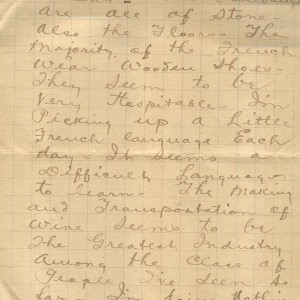 are all of Stone-
Also the Floors- The
Majority of the French
Wear Wooden Shoes-
They Seem to be
Very Hospitable- I'm
Picking up a Little
French language Each
day- It Seems a
Difficult Language
to learn- The Making
and Transportation of
Wine Seems to be
The Greatest Industry
Among the Class of
People I've Seen So
far- I'm